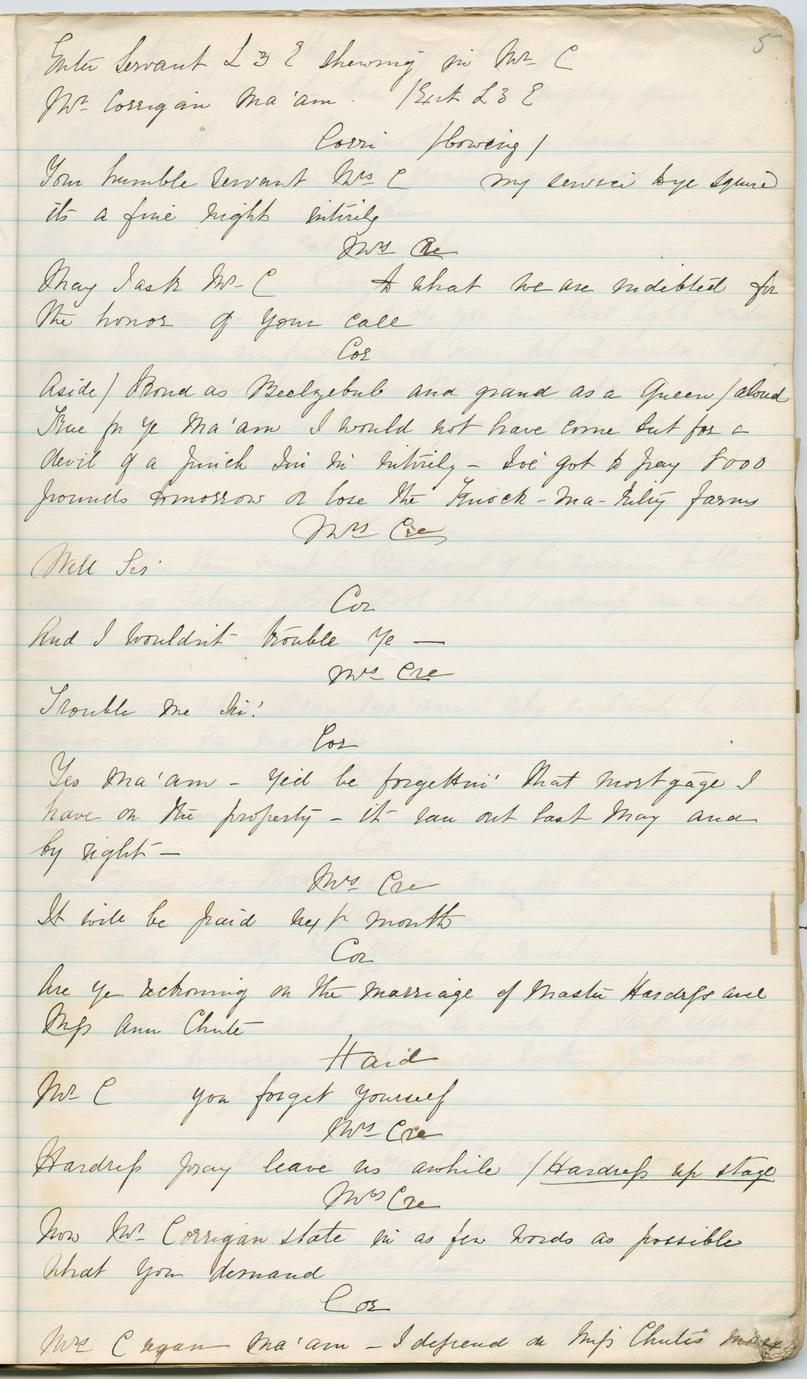 5
Enter Servant L 3 E shewing in Mr C
Mr Corrigan Ma'am. /Exit L 3 E
Corri /bowing/
Your humble servant Mrs C my service t'ye Squire
its a fine night intirely
Mrs Cre
May I ask Mr C to what we are indebted for
the honor of your call
Cor
Aside/ Proud as Beelzebub and grand as a Queen /aloud
True for ye Ma'am I would not have come but for a
devil of a pinch I'm in intirely - I've got to pay 8000
pounds tomorrow or lose the Knock-ma-Kilty farms
Mrs Cre
Well Sir
Cor
And I wouldn't trouble ye —
Mrs Cre
Trouble me Sir!
Cor
Yes Ma'am - ye'd be forgettin' that mortgage I
have on the property - it ran out last May and
by right —
Mrs Cre
It will be paid next month
Cor
Are ye reckoning on the marriage of Master Hardress and
Miss Ann Chute
Hard
Mr C you forget yourself
Mrs Cre
Hardress pray leave us awhile /Hardress up stage
Mrs Cre
Now Mr Corrigan state in as few words as possible
what you demand
Cor
Mrs C ma'am - I depend on Miss Chute's